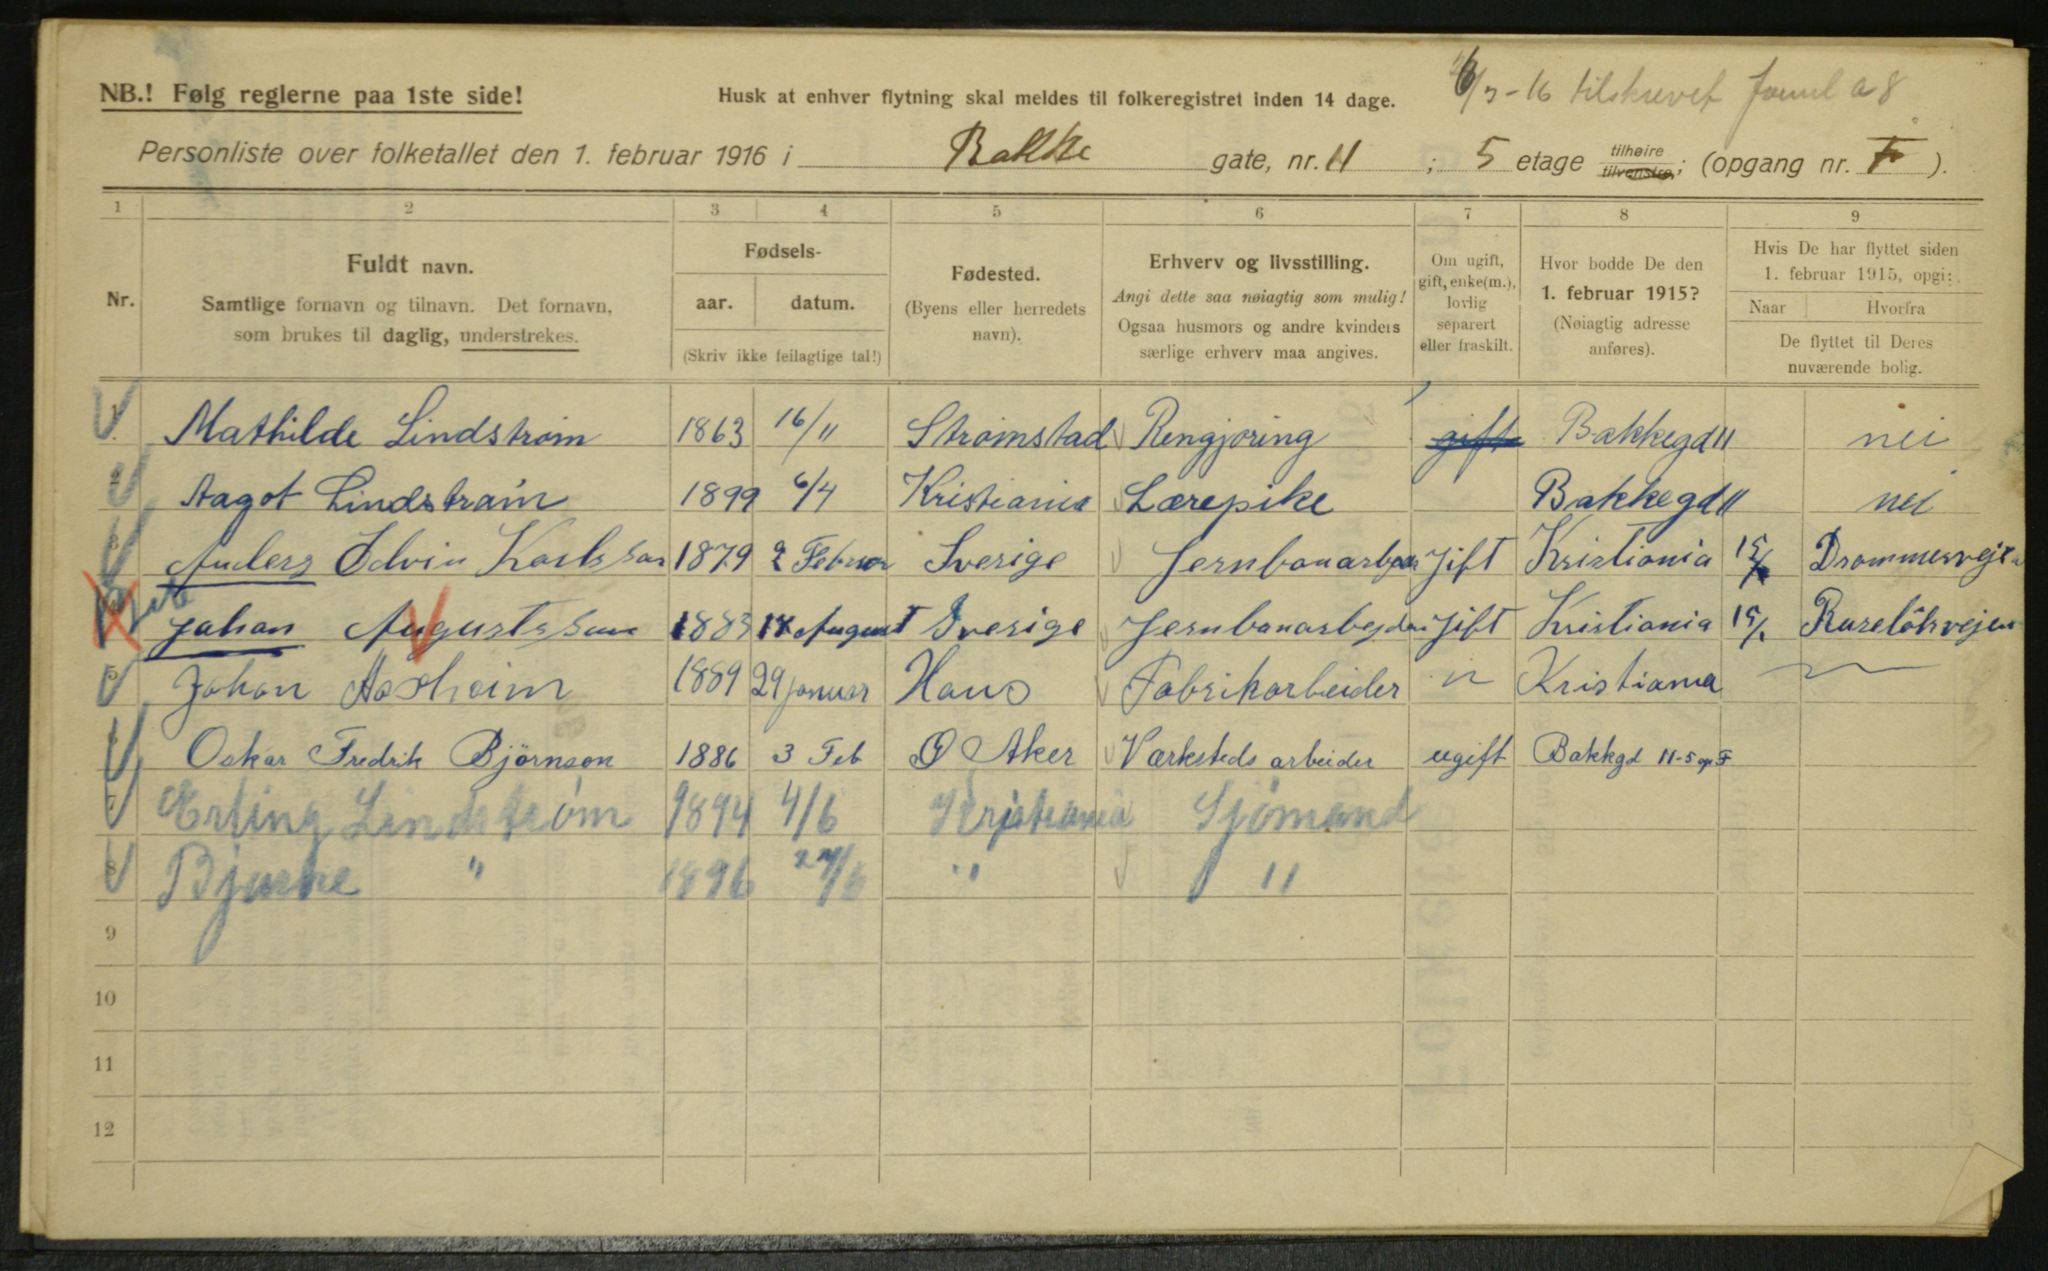 NB.! Følg reglerne paa 1ste side!
Husk at enhver flytning skal meldes til folkeregistret inden 14 dage.
/3-16 tilskrevet
Personliste over folketallet den 1. februar 1916 i Bakke gate, nr. 11 ; 5 etage tilhøire tilvenstre; (opgang nr. F ).
1 2 3 4 5 6 7 8 9
Nr.
Fuldt navn.
Samtlige fornavn og tilnavn. Det fornavn,
som brukes til daglig, understrekes.
Fødsels-
aar. datum.
(Skriv ikke feilagtige tal!)
Fødested.
(Byens eller herredets
navn).
Erhverv og livsstilling.
Angi dette saa nøiagtig som mulig!
Ogsaa husmors og andre kvinders
særlige erhverv maa angives.
Om ugift,
gift, enke(m.),
lovlig
separert
eller fraskilt.
Hvor bodde De den
1. februar 1915?
(Nøiagtig adresse
anføres).
Hvis De har flyttet siden
1. februar 1915, opgi:
Naar Hvorfra
De flyttet til Deres
nuværende bolig.
Mathilde Lindstrøm 1863 16/11 Strømstad Rengjøring gift Bakkegd 11 nei
Aagot Lindstrøm 1899 6/4 Kristiania Lærepike Bakkegd 11 nei
Anders Edvin Karlsson 1879 2 Februar Sverige Jernbanarbejdar Jift Kristiania 15/ Drammensvejen
Johan Augustsson 1883 18 August Sverige Jernbanarbejdar Jift Kristiania 15/
5 Johan 1889 29 januar Haus Fabrikarbeider " Kristiania
Oskar Fredrik Bjørnson 1886 3 Feb Ø Aker Værksteds arbeider ugift Bakkgd 11-5 op F
7 Erling Lindstrøm 1894 4/6 Kristiania Sjømand
8 Bjarne " 1896 24/6 " "
9
10
11
12